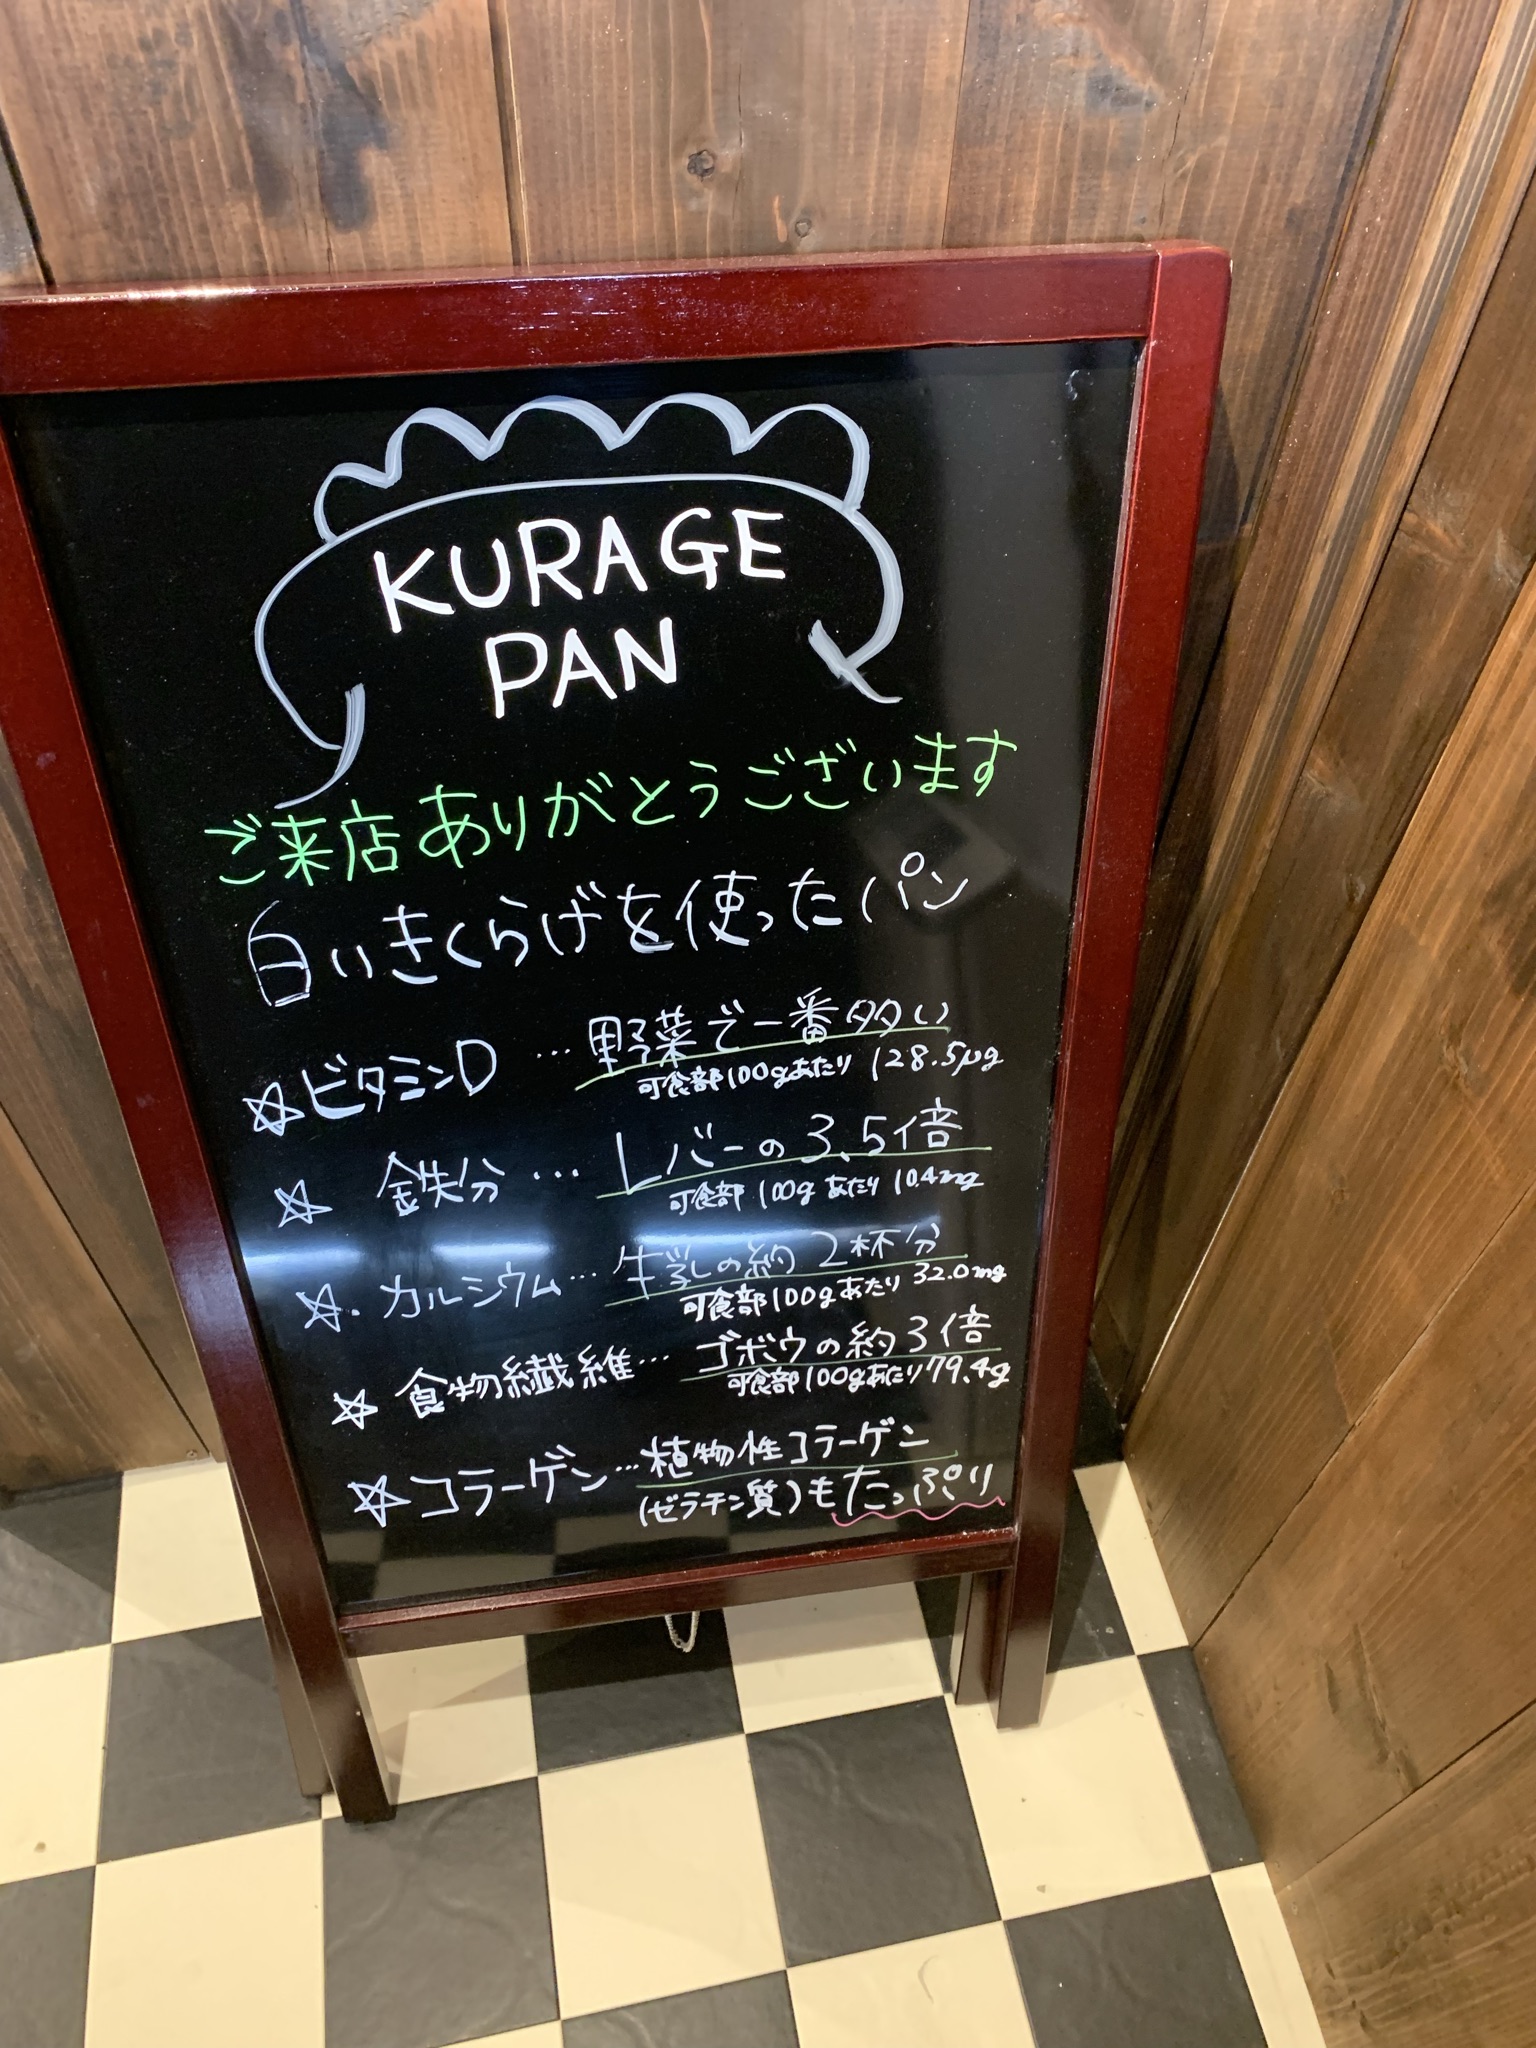 KURAGE
PAN
ご来店ありがとうございます
白いきくらげを使ったパン
☆ビタミンD…野菜で一番多い
可食部100gあたり 128.5μg
☆ 鉄分…レバーの3.5倍
可食部100gあたり 10.4mg
☆・カルシウム…牛乳の約2杯分
可食部100gあたり 32.0mg
☆ 食物繊維…ゴボウの約3倍
可食部100gあたり79.4g
☆コラーゲン…植物性コラーゲン
(ゼラチン質)もたっぷり